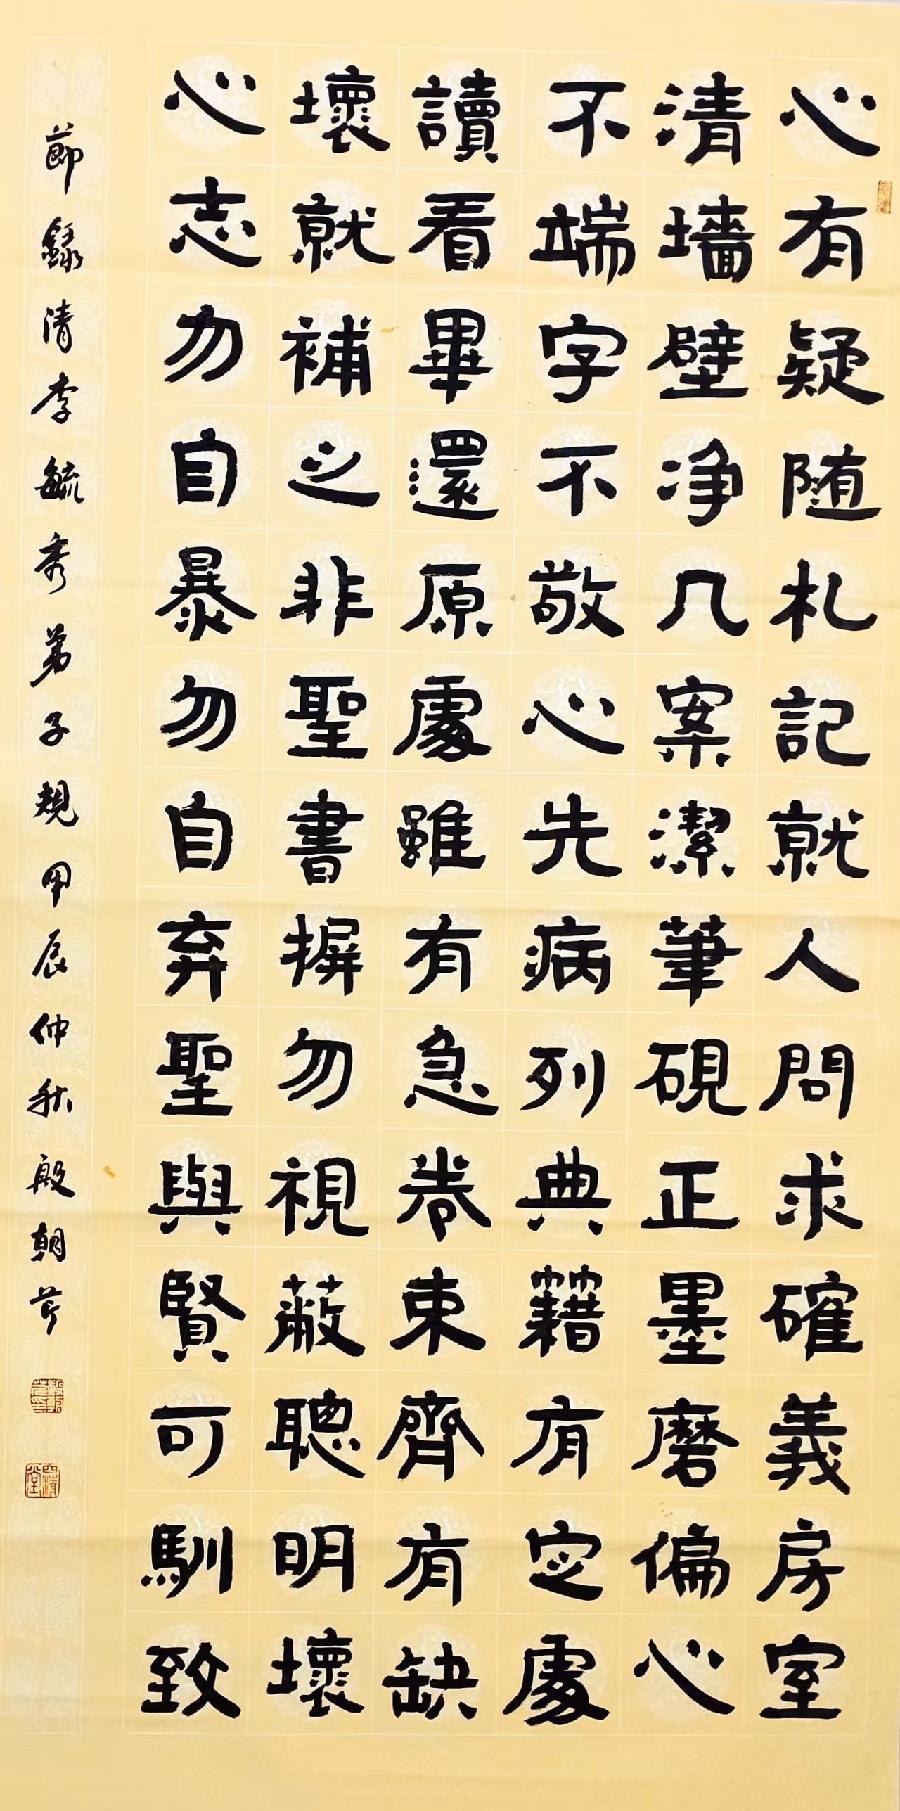 心有疑随札記就人問求確義房室
清墻壁净几案潔筆硯正墨磨偏心
不端字不敬心先病列典籍有定處
讀看畢還原處雖有急卷束齊有缺
壞就補之非聖書摒勿視蔽聰明壞
心志勿自暴勿自弃聖與賢可馴致
節録清李毓秀弟子規甲辰仲秋殷朝芹